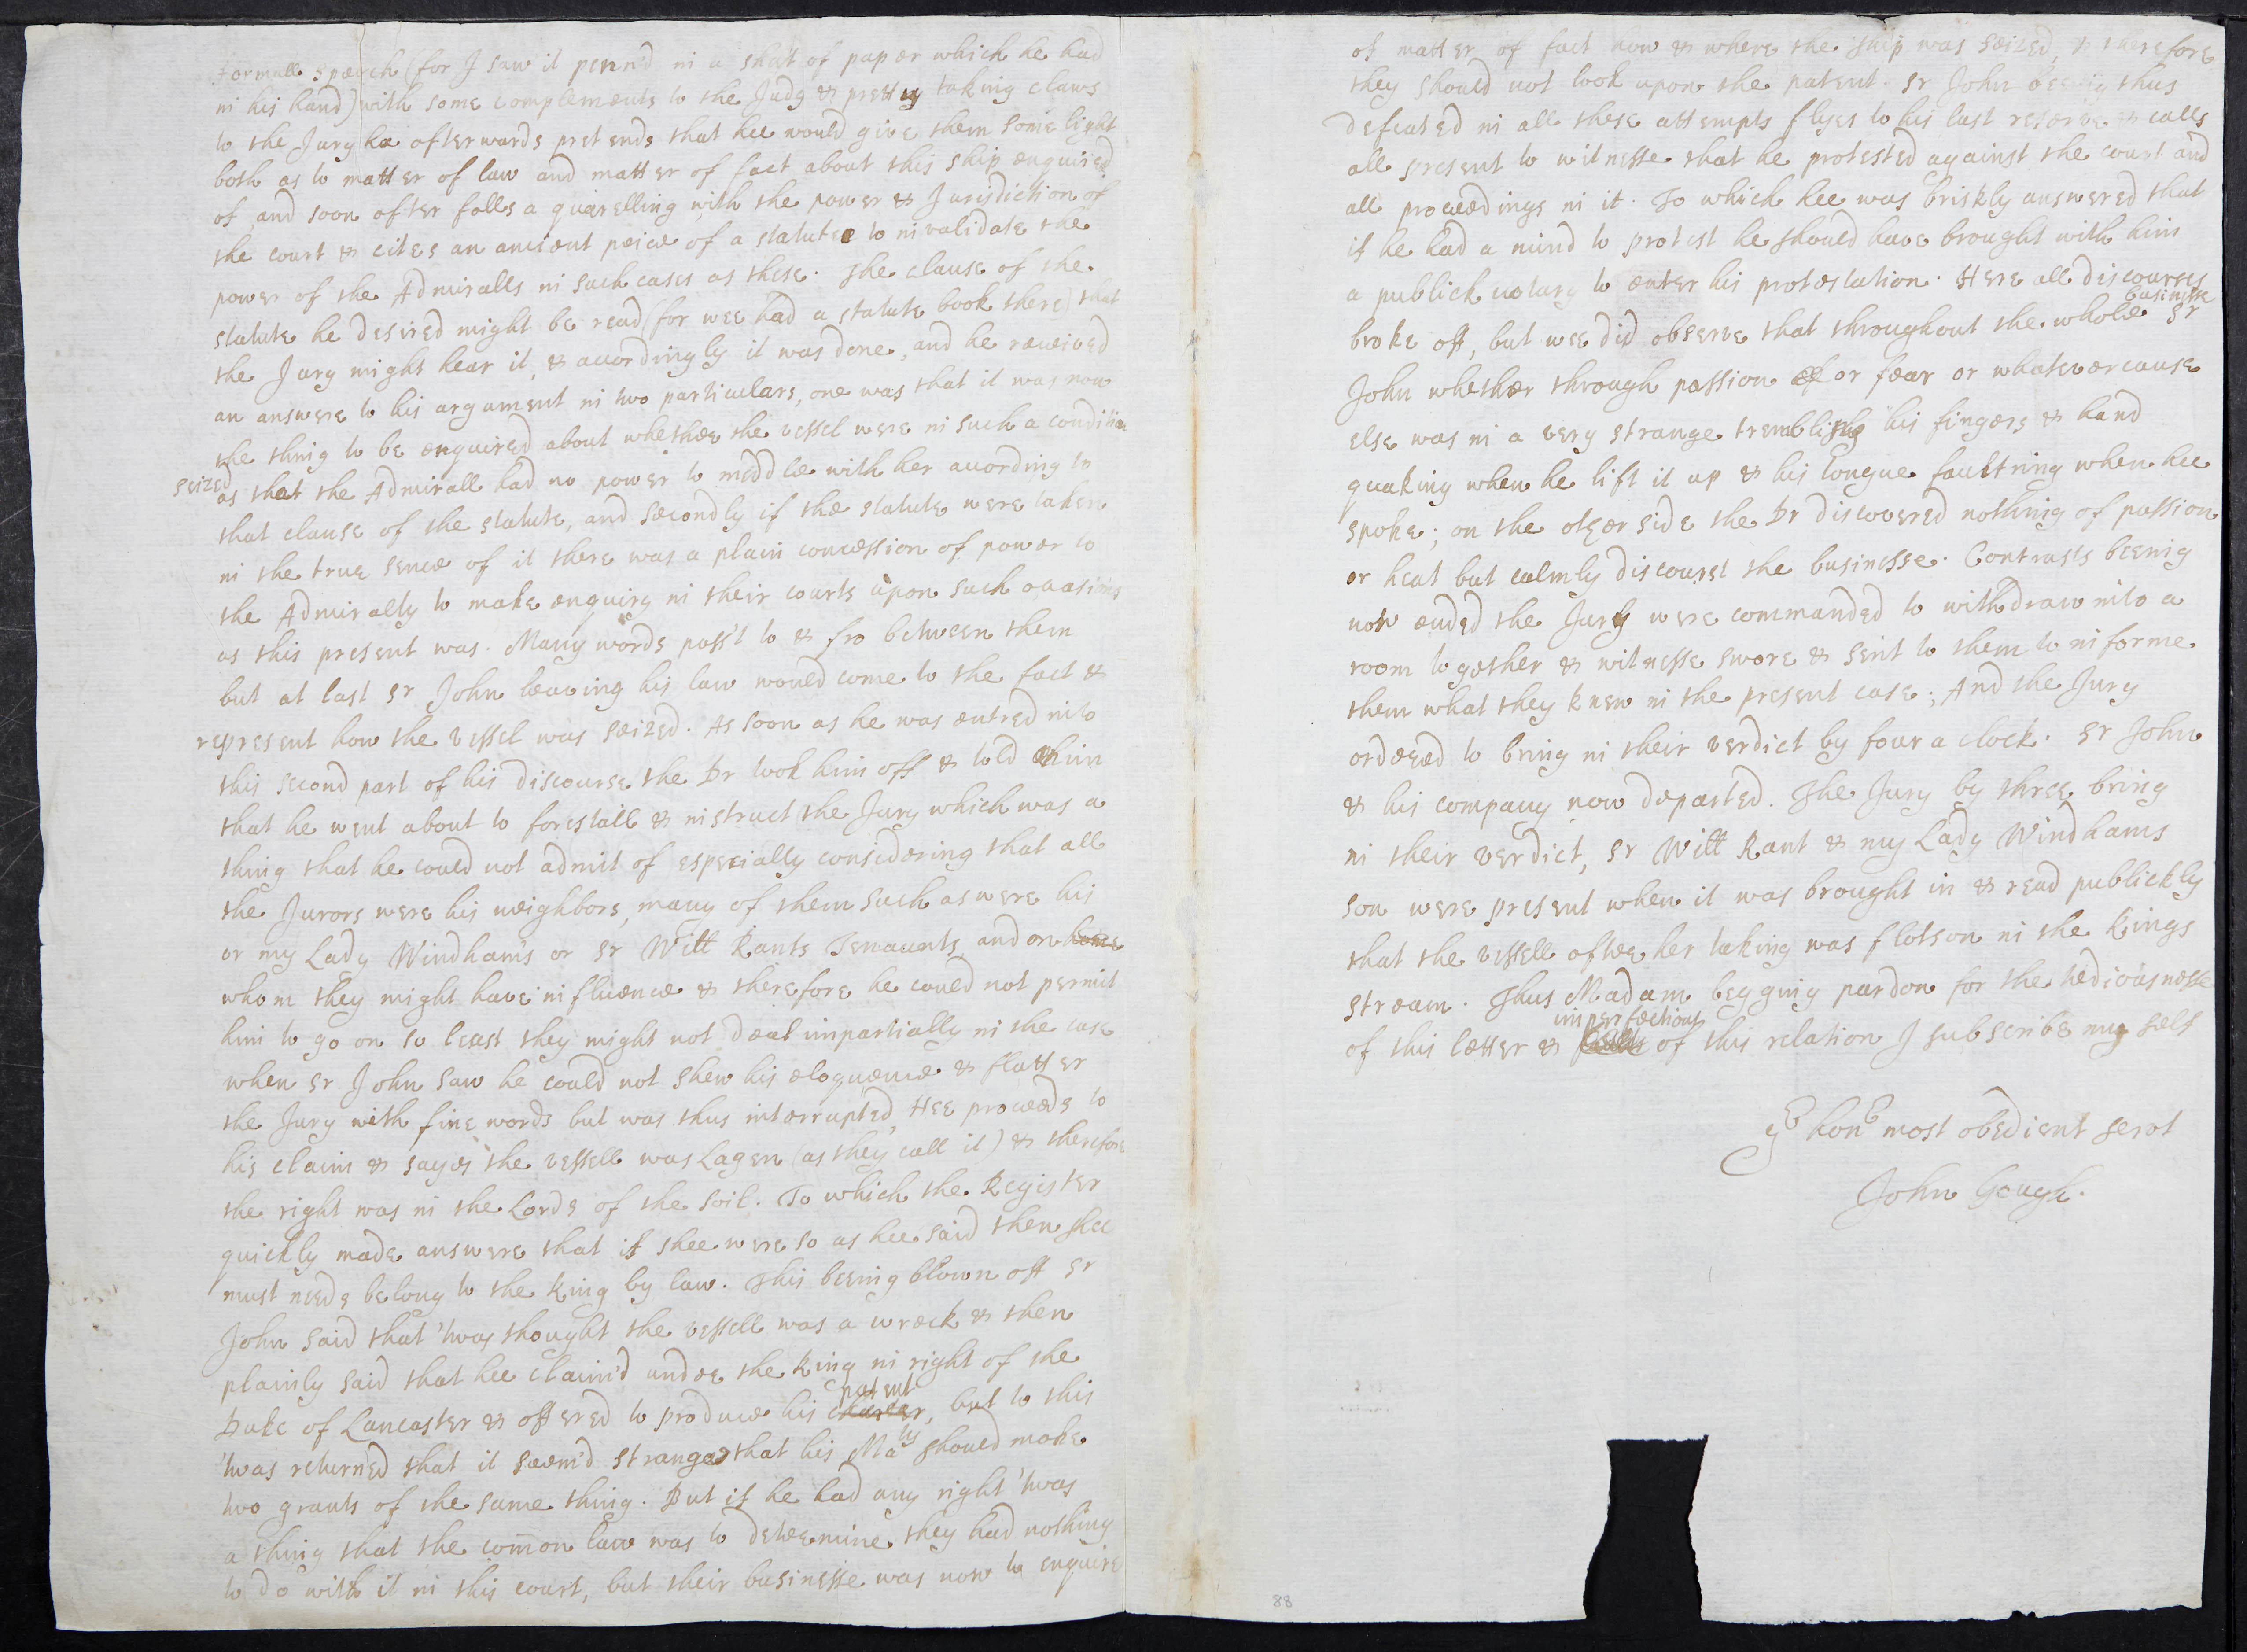 formall speech (for I saw it penn'd in a sheit of paper which he had
in his hand) with some complements to the Judg & pretty taking claws
to the Jury he afterwards pretends that hee would give them some light
both as to matter of law and matter of fact about this ship enquired
of, and soon after falls a quarelling with the power & Jurisdiction of
the court & cites an ancient peice of a statute to invalidate the
power of the Admiralls in such cases as these. The clause of the
statute he desired might be read (for wee had a statute book there) that
the Jury might hear it, & accordingly it was done, and he received
an answere to his argument in two particulars, one was that it was now
the thing to be enquired about whether the vessel were in such a condition
seized
as that the Admirall had no power to meddle with her according to
that clause of the statute, and secondly if the statute were taken
in the true sence of it there was a plain concession of power to
the Admiralty to make enquiry in their courts upon such occasions
as this present was. Many words pass't to & fro between them
but at last Sr John leaving his law would come to the fact &
represent how the vessel was seized. As soon as he was entred into
this second part of his discourse the Dr took him off & told him
that he went about to forestall & instruct the Jury which was a
thing that he could not admit of especially considering that all
the Jurors were his neighbors, many of them such as were his
or my Lady Windham's or Sr Will Rants Tenaunts and on
whom they might have influence & therefore he could not permit
him to go on so least they might not deal impartially in the case
when Sr John saw he could not shew his eloquence & flatter
the Jury with fine words but was thus interrupted, Hee proceeds to
his claim & sayes the vessell was Lagen (as they call it) & therefore
the right was in the Lords of the soil. To which the Register
quickly made answere that if shee were so as hee said then shee
must needs belong to the king by law. This beeing blown off Sr
John said that 'twas thought the vessell was a wreck & then
plainly said that hee claim'd under the king in right of the
patent
Duke of Lancaster & offered to produce his charter, but to this
'twas returned that it seem'd strange that his Maty should make
two grants of the same thing. But if he had any right 'twas
a thing that the common law was to determine they had nothing
to do with it in this court, but their businesse was now to enquire
88
of matter of fact how & where the ship was seized, & therefore
they should not look upon the patent. Sr John beeing thus
defeated in all these attempts flyes to his last reserve & calls
all present to witnesse that he protested against the court and
all proceedings in it. To which hee was briskly answered that
if he had a mind to protest he should have brought with him
a publick notary to enter his protestation. Here all discourses
businesse
broke off, but wee did observe that throughout the whole Sr
John whether through passion or fear or whatever cause
else was in a very strange trembling his fingers & hand
quaking when he lift it up & his tongue faultring when hee
spoke; on the other side the Dr discovered nothing of passion
or heat but calmly discourst the businesse. Contrasts beeing
now ended the Jury were commanded to withdraw into a
room together & witnesse swore & sent to them to informe
them what they knew in the present case; And the Jury
ordered to bring in their verdict by four a clock. Sr John
& his company now departed. The Jury by three bring
in their verdict, Sr Will Rant & my Lady Windhams
son were present when it was brought in & read publickly
that the vessell after her taking was flotson in the Kings
stream. Thus Madam begging pardon for the tediousnesse
imperfections
of this letter & of this relation I subscribe my self
Yr honrs most obedient servt
John Gough.